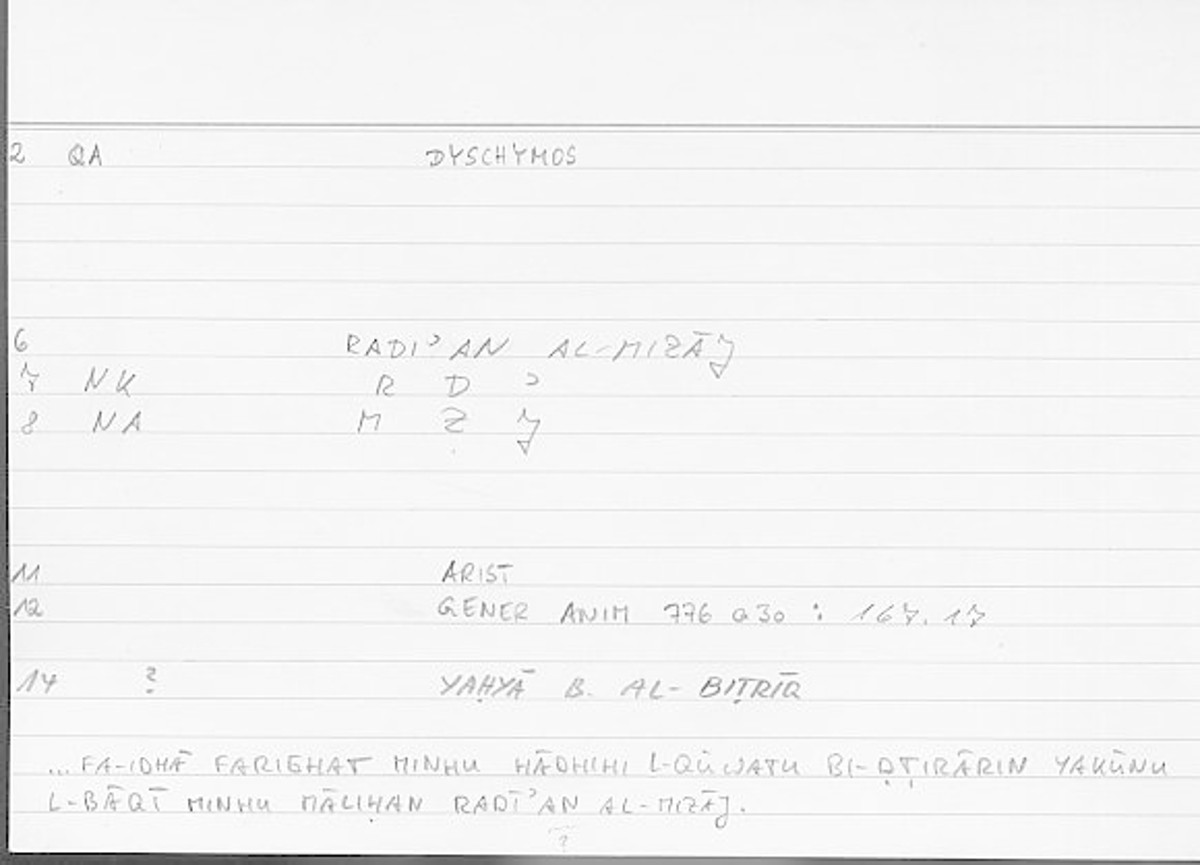 2 QA DYSCHYMOS
6 RADI'AN AL-MIZĀJ
7 NK R D '
8 NA M Z J
11 ARIST
12 GENER ANIM 776 a30 : 167.17
14 ? YAḤYĀ B. AL-BIṬRĪQ
... FA-IDHĀ FARIGHAT MINHU HĀDHIHI L-QŪWATU BI-ḌṬIRĀRIN YAKŪNU
L-BĀQĪ MINHU MĀLIḤAN RADĪ'AN AL-MIZĀJ.
?